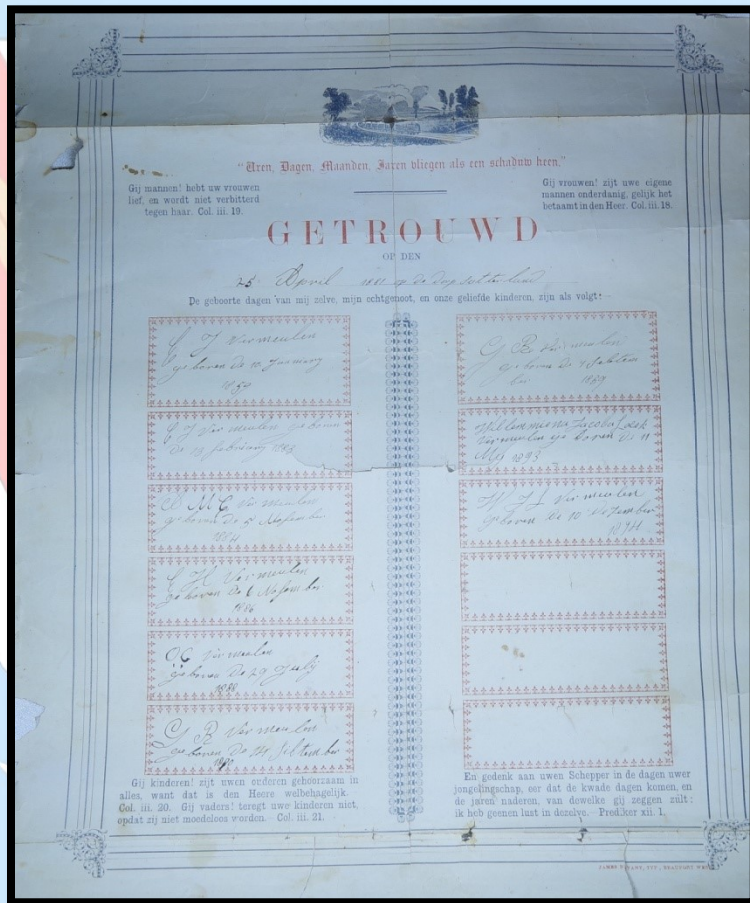 "Uren, Dagen, Maanden, Jaren vliegen als een schaduw heen."
Gij mannen! hebt uw vrouwen
lief, en wordt niet verbitterd
tegen haar. Col. iii. 19.
Gij vrouwen! zijt uwe eigene
mannen onderdanig, gelijk het
betaamt in den Heer. Col. iii. 18.
GETROUWD
OP DEN
25 April 1881 op de dorp
De geboorte dagen van mij zelve, mijn echtgenoot, en onze geliefde kinderen, zijn als volgt:—
J Vermeulen
geboren de 10 Januarij
1859
J Vermeulen geboren
de 19 februarij 1883
D M C Vermeulen
geboren de 5 Nofember
1884
H Vermeulen
geboren de 6 Nofember
1886
O C Vermeulen
geboren de 29 July
1888
G B Vermeulen
geboren de 24 Sebtember
1890
G B Vermeulen
geboren de 4 Sebtem
ber 1859
Willemiena Jacoba
Vermeulen geboren de 11
Mei 1893
H J L Vermeulen
geboren de 10 Desember
1894
Gij kinderen! zijt uwen ouderen gehoorzaam in
alles, want dat is den Heere welbehagelijk.
Col. iii. 20. Gij vaders! teregt uwe kinderen niet,
opdat zij niet moedeloos worden.—Col. iii. 21.
En gedenk aan uwen Schepper in de dagen uwer
jongelingschap, eer dat de kwade dagen komen, en
de jaren naderen, van dewelke gij zeggen zult:
ik heb geenen lust in dezelve.—Prediker xii. 1.
JAMES